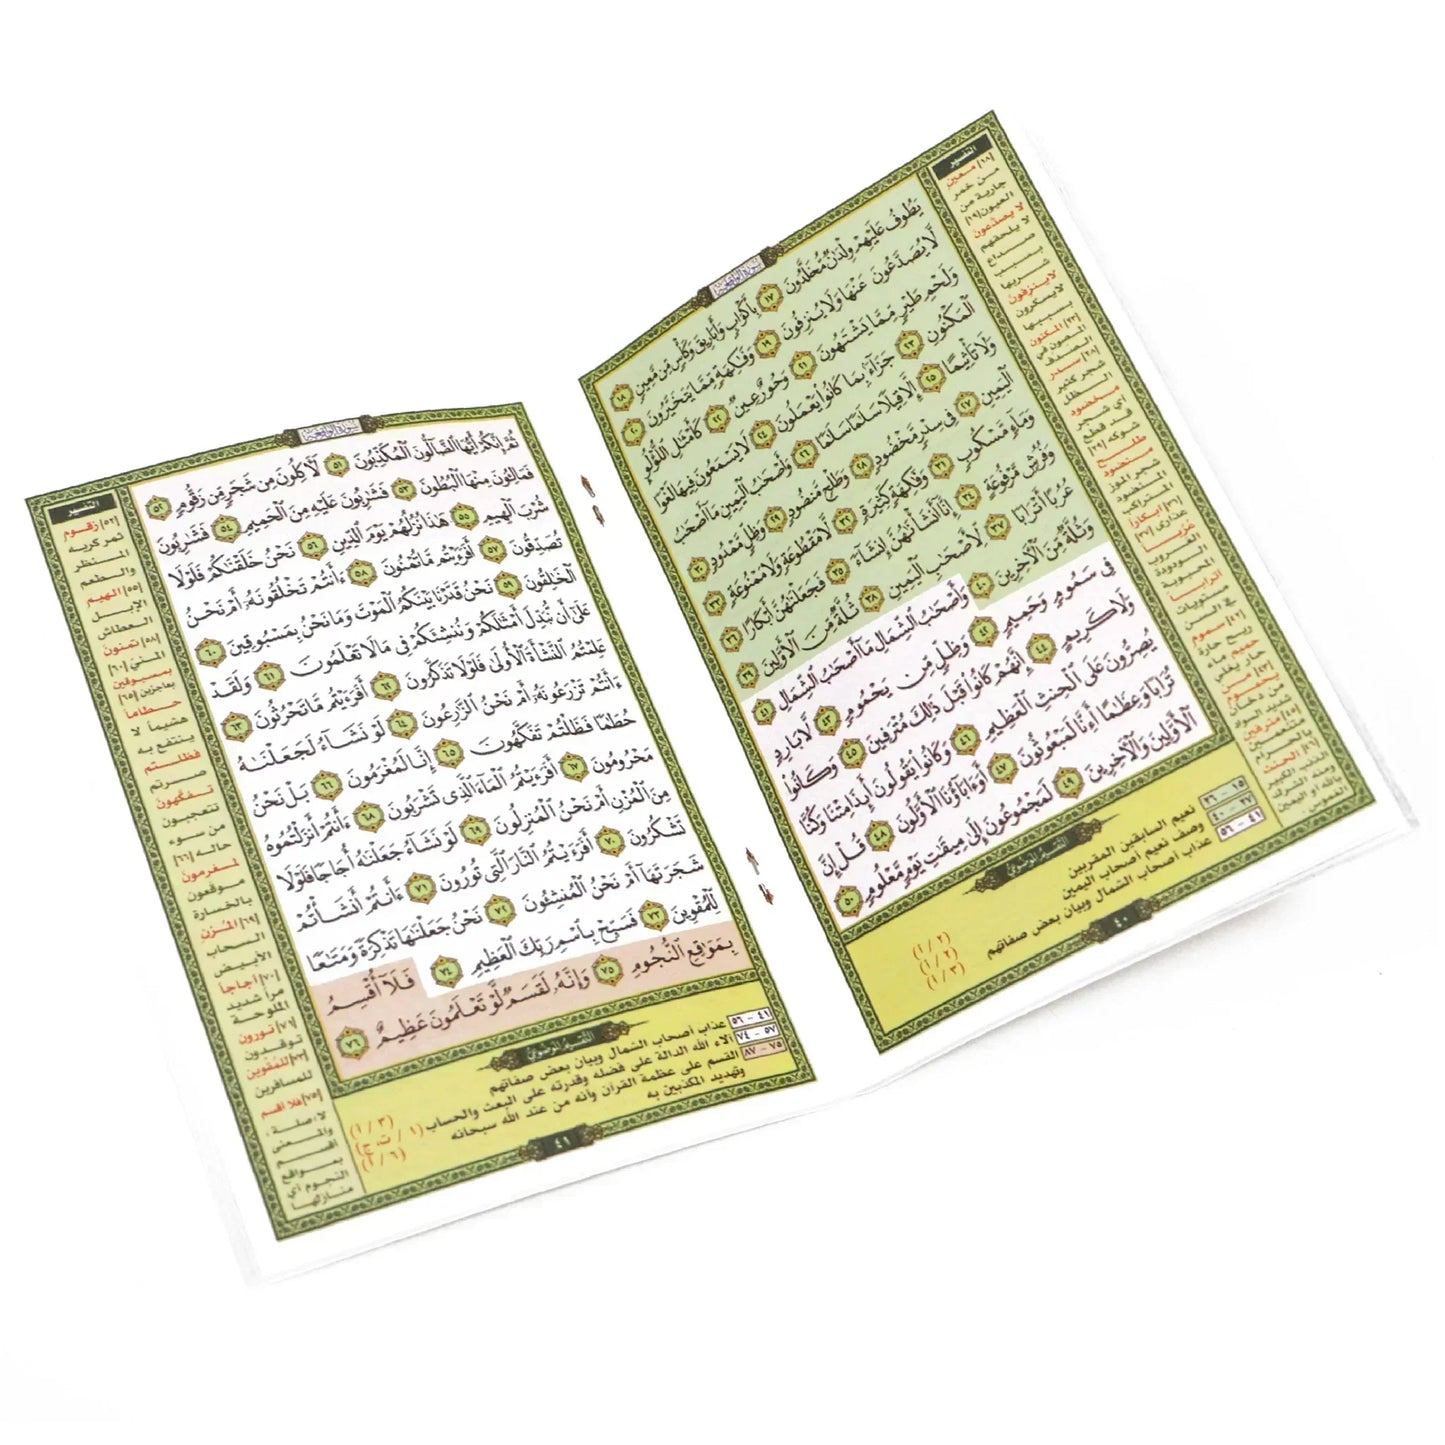 سورة الواقعة
يَطُوفُ عَلَيْهِمْ وِلْدَانٌ مُّخَلَّدُونَ ١٧ بِأَكْوَابٍ وَأَبَارِيقَ وَكَأْسٍ مِّن مَّعِينٍ ١٨
لَّا يُصَدَّعُونَ عَنْهَا وَلَا يُنزِفُونَ ١٩ وَفَاكِهَةٍ مِّمَّا يَتَخَيَّرُونَ ٢٠
وَلَحْمِ طَيْرٍ مِّمَّا يَشْتَهُونَ ٢١ وَحُورٌ عِينٌ ٢٢ كَأَمْثَالِ اللُّؤْلُؤِ
الْمَكْنُونِ ٢٣ جَزَاءً بِمَا كَانُوا يَعْمَلُونَ ٢٤ لَا يَسْمَعُونَ فِيهَا لَغْوًا
وَلَا تَأْثِيمًا ٢٥ إِلَّا قِيلًا سَلَامًا سَلَامًا ٢٦ وَأَصْحَابُ الْيَمِينِ مَا أَصْحَابُ
الْيَمِينِ ٢٧ فِي سِدْرٍ مَّخْضُودٍ ٢٨ وَطَلْحٍ مَّنضُودٍ ٢٩ وَظِلٍّ مَّمْدُودٍ ٣٠
وَمَاءٍ مَّسْكُوبٍ ٣١ وَفَاكِهَةٍ كَثِيرَةٍ ٣٢ لَّا مَقْطُوعَةٍ وَلَا مَمْنُوعَةٍ ٣٣
وَفُرُشٍ مَّرْفُوعَةٍ ٣٤ إِنَّا أَنشَأْنَاهُنَّ إِنشَاءً ٣٥ فَجَعَلْنَاهُنَّ أَبْكَارًا ٣٦
عُرُبًا أَتْرَابًا ٣٧ لِّأَصْحَابِ الْيَمِينِ ٣٨ ثُلَّةٌ مِّنَ الْأَوَّلِينَ ٣٩
وَثُلَّةٌ مِّنَ الْآخِرِينَ ٤٠ وَأَصْحَابُ الشِّمَالِ مَا أَصْحَابُ الشِّمَالِ ٤١
فِي سَمُومٍ وَحَمِيمٍ ٤٢ وَظِلٍّ مِّن يَحْمُومٍ ٤٣ لَّا بَارِدٍ
وَلَا كَرِيمٍ ٤٤ إِنَّهُمْ كَانُوا قَبْلَ ذَٰلِكَ مُتْرَفِينَ ٤٥ وَكَانُوا
يُصِرُّونَ عَلَى الْحِنثِ الْعَظِيمِ ٤٦ وَكَانُوا يَقُولُونَ أَئِذَا مِتْنَا وَكُنَّا
تُرَابًا وَعِظَامًا أَإِنَّا لَمَبْعُوثُونَ ٤٧ أَوَآبَاؤُنَا الْأَوَّلُونَ ٤٨ قُلْ إِنَّ
الْأَوَّلِينَ وَالْآخِرِينَ ٤٩ لَمَجْمُوعُونَ إِلَىٰ مِيقَاتِ يَوْمٍ مَّعْلُومٍ ٥٠
التفسير
[١٨] معين
من خمر
جارية من
العيون [١٩]
لا يصدعون
لا يلحقهم
صداع
بسبب
شربها
لا ينزفون
لا يسكرون
بسببها
[٢٣] المكنون
المصون في
الصدف
[٢٨] سدر
شجر كثير
الظل
مخضود
أي شجر
قد قطع
شوكه [٢٩]
طلح
منضود
شجر الموز
المنضود
المتراكب
[٣٦] أبكارا
عذارى [٣٧]
عربا
العروب
الودودة
المحبوبة
أترابا
مستويات
في السن
[٤٢] سموم
ريح حارة
حميم ماء
حار يغلي
[٤٣] من
يحموم
من دخان
شديد السواد
[٤٥] مترفين
متنعمين
بالحرام
[٤٦] الحنث
الذنب الكبير
ومنه الشرك
بالله أو اليمين
الغموس.
التقسيم الموضوعي
١٥ - ٢٦ نعيم السابقين المقربين (١/٢)
٢٧ - ٤٠ وصف نعيم أصحاب اليمين (١/٢)
٤١ - ٥٦ عذاب أصحاب الشمال وبيان بعض صفاتهم (١/٣)
٤٠
سورة الواقعة
ثُمَّ إِنَّكُمْ أَيُّهَا الضَّالُّونَ الْمُكَذِّبُونَ ٥١ لَآكِلُونَ مِن شَجَرٍ مِّن زَقُّومٍ ٥٢
فَمَالِئُونَ مِنْهَا الْبُطُونَ ٥٣ فَشَارِبُونَ عَلَيْهِ مِنَ الْحَمِيمِ ٥٤ فَشَارِبُونَ
شُرْبَ الْهِيمِ ٥٥ هَٰذَا نُزُلُهُمْ يَوْمَ الدِّينِ ٥٦ نَحْنُ خَلَقْنَاكُمْ فَلَوْلَا
تُصَدِّقُونَ ٥٧ أَفَرَأَيْتُم مَّا تُمْنُونَ ٥٨ أَأَنتُمْ تَخْلُقُونَهُ أَمْ نَحْنُ
الْخَالِقُونَ ٥٩ نَحْنُ قَدَّرْنَا بَيْنَكُمُ الْمَوْتَ وَمَا نَحْنُ بِمَسْبُوقِينَ ٦٠
عَلَىٰ أَن نُّبَدِّلَ أَمْثَالَكُمْ وَنُنشِئَكُمْ فِي مَا لَا تَعْلَمُونَ ٦١ وَلَقَدْ
عَلِمْتُمُ النَّشْأَةَ الْأُولَىٰ فَلَوْلَا تَذَكَّرُونَ ٦٢ أَفَرَأَيْتُم مَّا تَحْرُثُونَ ٦٣
أَأَنتُمْ تَزْرَعُونَهُ أَمْ نَحْنُ الزَّارِعُونَ ٦٤ لَوْ نَشَاءُ لَجَعَلْنَاهُ
حُطَامًا فَظَلْتُمْ تَفَكَّهُونَ ٦٥ إِنَّا لَمُغْرَمُونَ ٦٦ بَلْ نَحْنُ
مَحْرُومُونَ ٦٧ أَفَرَأَيْتُمُ الْمَاءَ الَّذِي تَشْرَبُونَ ٦٨ أَأَنتُمْ أَنزَلْتُمُوهُ
مِنَ الْمُزْنِ أَمْ نَحْنُ الْمُنزِلُونَ ٦٩ لَوْ نَشَاءُ جَعَلْنَاهُ أُجَاجًا فَلَوْلَا
تَشْكُرُونَ ٧٠ أَفَرَأَيْتُمُ النَّارَ الَّتِي تُورُونَ ٧١ أَأَنتُمْ أَنشَأْتُمْ
شَجَرَتَهَا أَمْ نَحْنُ الْمُنشِئُونَ ٧٢ نَحْنُ جَعَلْنَاهَا تَذْكِرَةً وَمَتَاعًا
لِّلْمُقْوِينَ ٧٣ فَسَبِّحْ بِاسْمِ رَبِّكَ الْعَظِيمِ ٧٤ فَلَا أُقْسِمُ
بِمَوَاقِعِ النُّجُومِ ٧٥ وَإِنَّهُ لَقَسَمٌ لَّوْ تَعْلَمُونَ عَظِيمٌ ٧٦
التفسير
[٥٢] زقوم
ثمر كريه
المنظر
والطعم
[٥٥] الهيم
الإبل
العطاش
[٥٨] تمنون
المني [٦٠]
بمسبوقين
بعاجزين [٦٥]
حطاما
هشيما لا
ينتفع به
فظلتم
صرتم
تفكهون
تتعجبون
من سوء
حاله [٦٦]
لمغرمون
موقعون
بالخسارة
[٦٩] المزن
السحاب
الأبيض
[٧٠] أجاجا
مرا شديد
الملوحة
[٧١] تورون
توقدون
[٧٣] للمقوين
للمسافرين
[٧٥] فلا أقسم
لا: صلة،
والمعنى
أقسم
بمواقع
النجوم أي
منازلها
التقسيم الموضوعي
٤١ - ٥٦ عذاب أصحاب الشمال وبيان بعض صفاتهم (١/٣)
٥٧ - ٧٤ آلاء الله الدالة على فضله وقدرته على البعث والحساب (١/ت، ج)
٧٥ - ٨٧ القسم على عظمة القرآن وأنه من عند الله سبحانه
وتهديد المكذبين به (٢/٦)
٤١